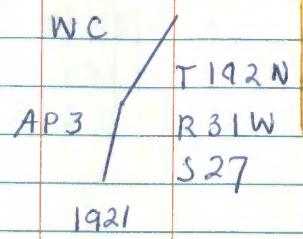 WC
T142N
AP3
R31W
S27
1921